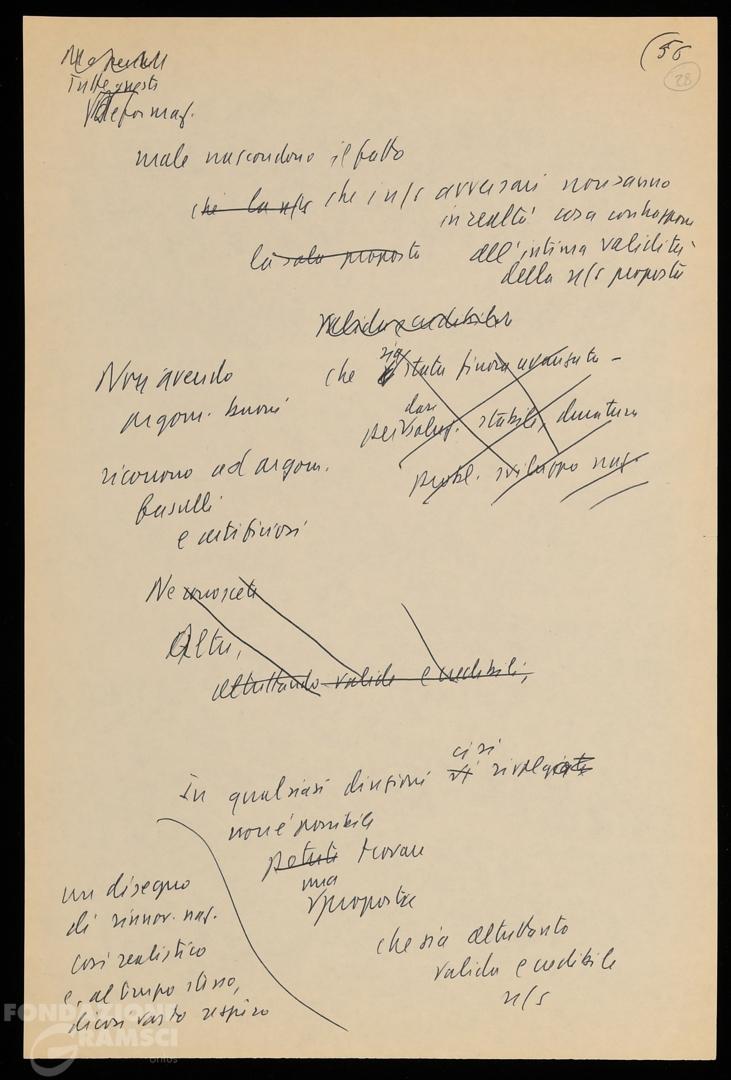 (56
28
Tutte queste
deformaz.
male nascondono il fatto
che la n/s che i n/s avversari non sanno
in realtà cosa contrapporre
la sola proposta all'intima validità
della n/s proposta
valida e credibile
Non avendo che sia stata finora avanzata –
argom. buoni
dare
per soluz. stabile, duratura
ricorrono ad argom.
probl. sviluppo naz.
fasulli
e artificiosi
Ne conoscete
Altre,
altrettanto valide e credibili,
ci si
In qualsiasi direzione vi rivolgiate
non è possibile
potete trovare
una
proposta
un disegno
di rinnov. naz.
che sia altrettanto
così realistico
valida e credibile
e, al tempo stesso,
n/s
di così vasto respiro
FONDAZIONE
GRAMSCI
onlus